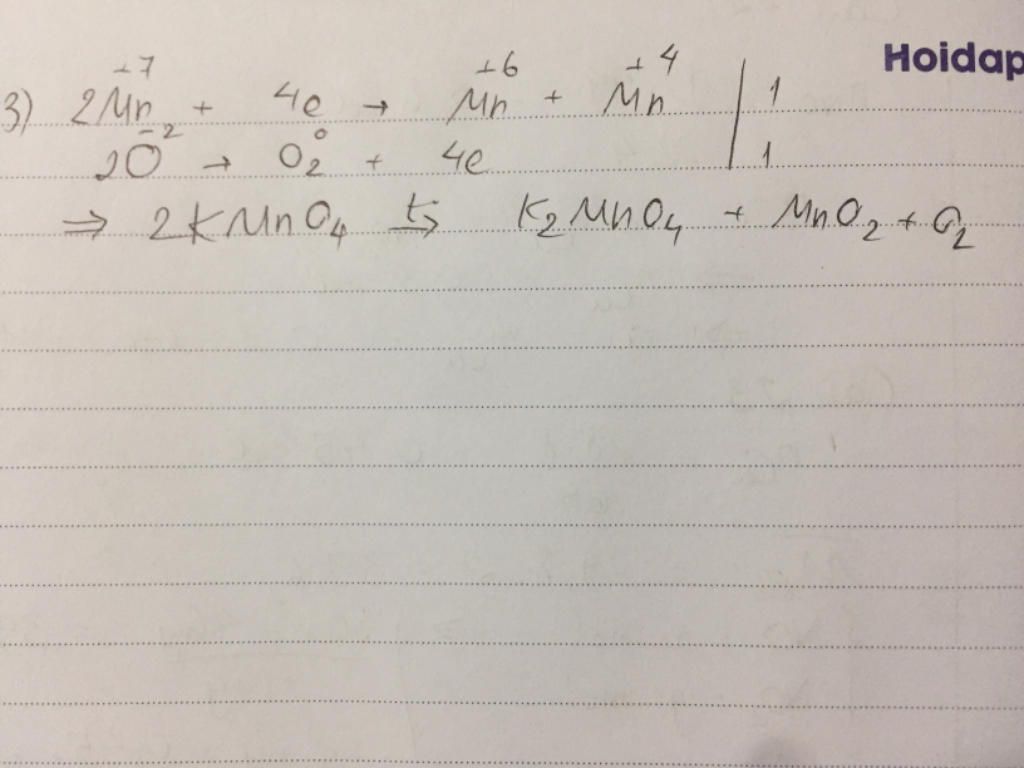 Hoidap
3) 2Mn⁺⁷ + 4e → Mn⁺⁶ + Mn⁺⁴ | 1
2O⁻² → O₂⁰ + 4e | 1
⇒ 2KMnO₄ →(t°) K₂MnO₄ + MnO₂ + O₂